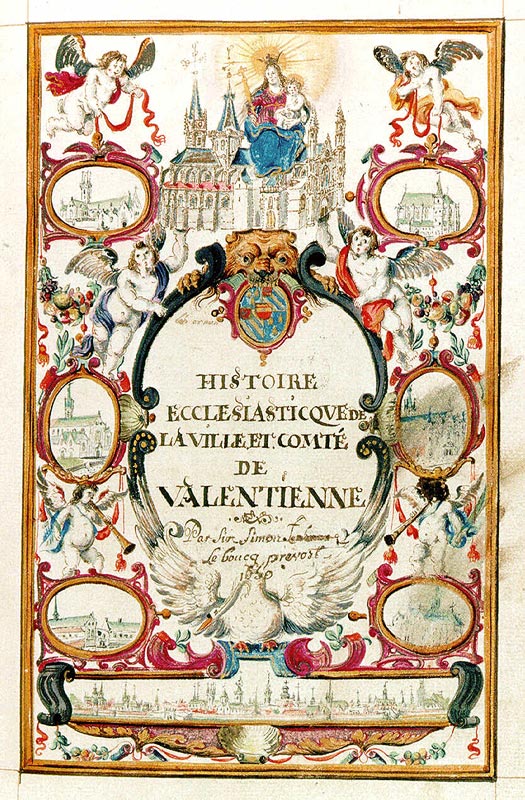 HISTOIRE
ECCLÆSIASTICQVE DE
LA VILLE ET COMTÉ
DE
VALENTIENNE
Par Sir Simon
le boucq prevost